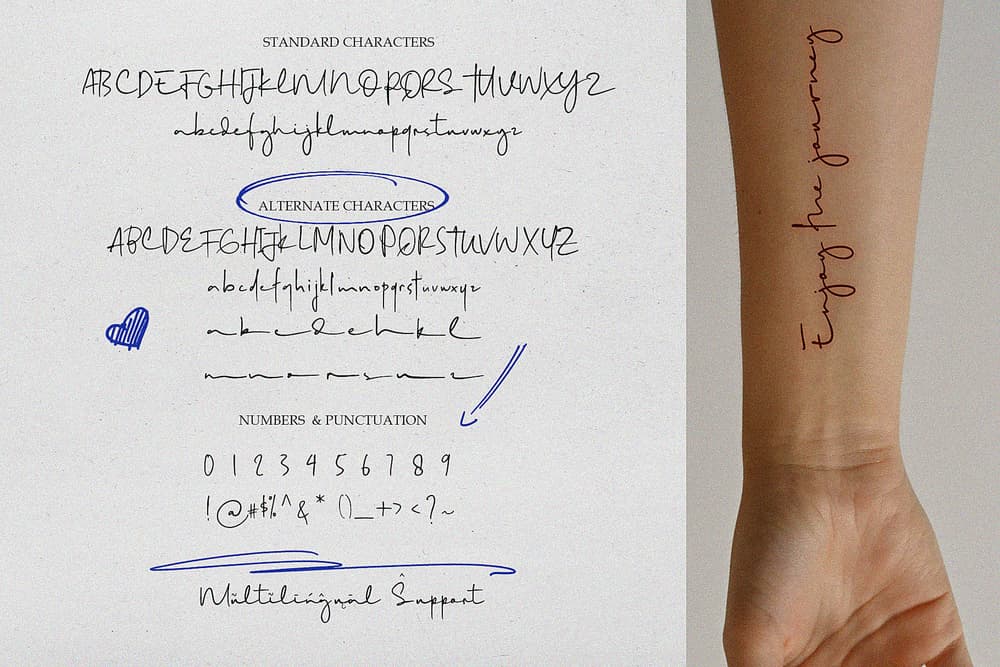 STANDARD CHARACTERS
ABCDEFGHIJKLMNOPQRSTUVWXYZ
abcdefghijklmnopqrstuvwxyz
ALTERNATE CHARACTERS
ABCDEFGHIJKLMNOPQRSTUVWXYZ
abcdefghijklmnopqrstuvwxyz
a b c d e h k l
m n o r s u z
NUMBERS & PUNCTUATION
0 1 2 3 4 5 6 7 8 9
!@#$%^&*()_+><?~
Mŭltĭlińĝŋāl Ŝupport
Enjoy the journey